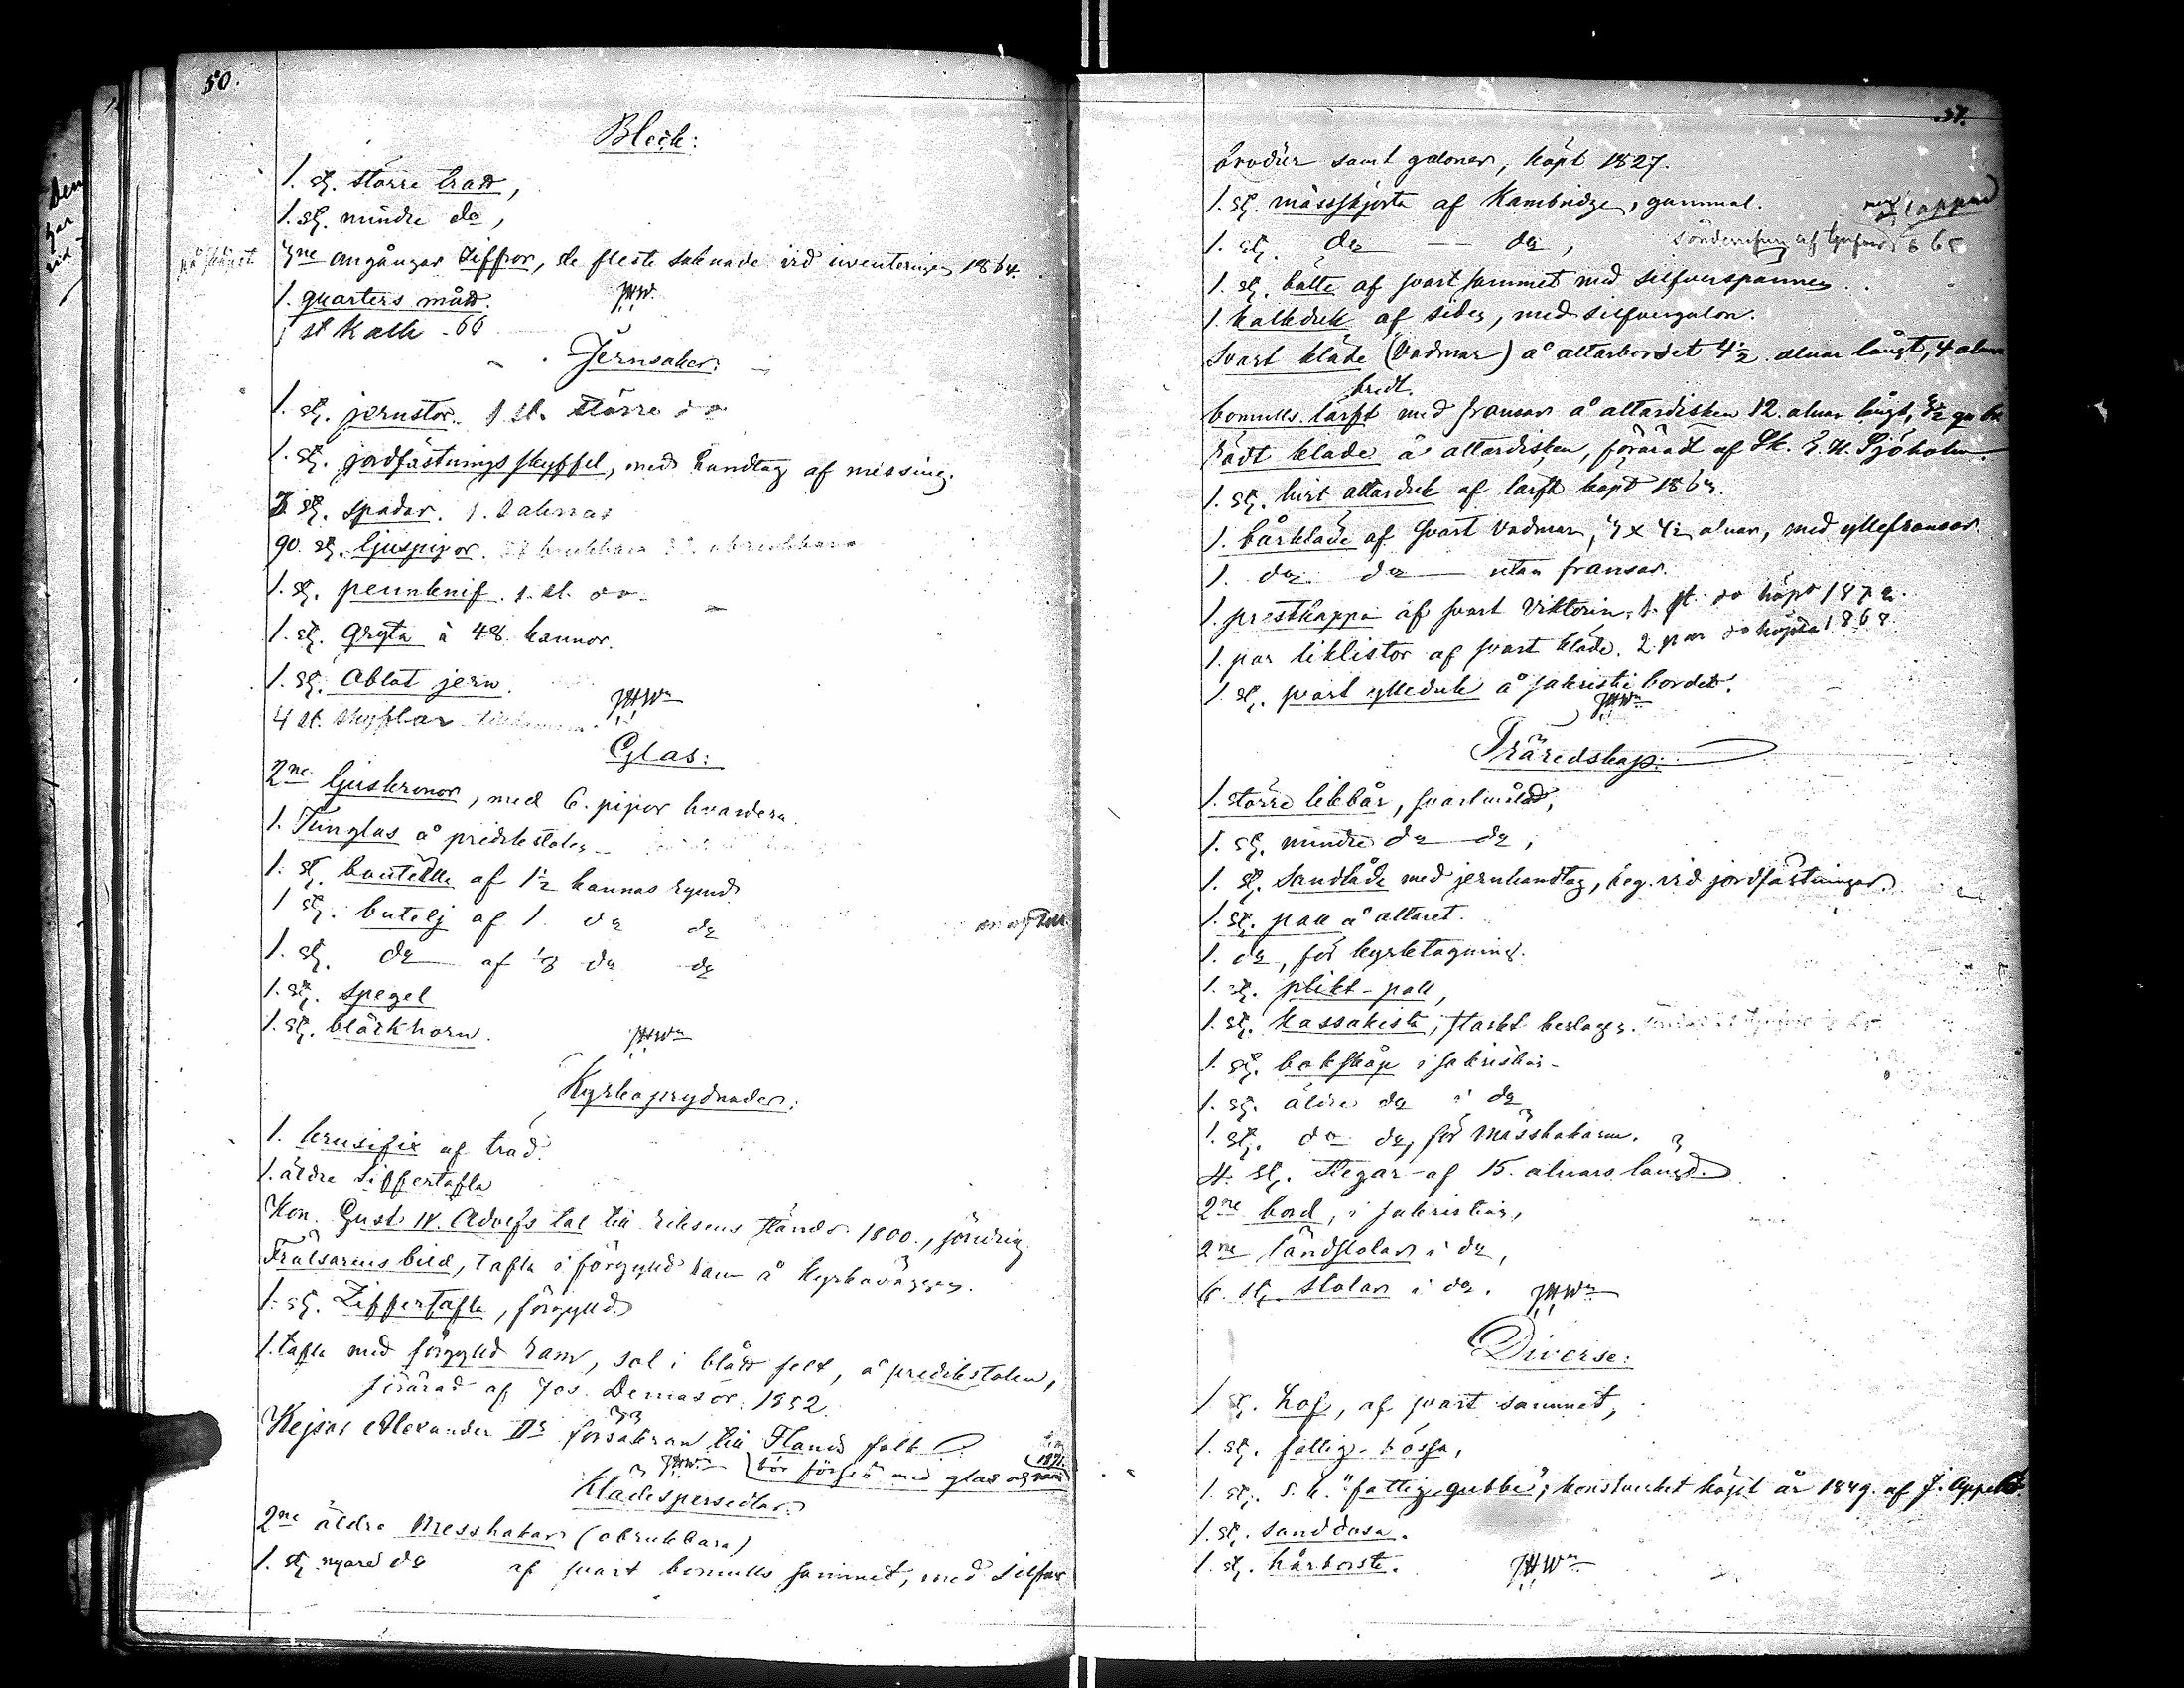 50.
Bleck:
1. st. större tratt,
1. st. mindre do,
3ne omgångar Ziffror, de fleste saknade vid inventeringen 1864.
1. quarters mått.
1 st Kalk 66
Jernsaker:
1. st. jernstör. 1 st. större do
1. st. jordfästnings skyffel, med handtag af messing.
st. spadar. 1.
90. st. ljuspipor.
1. st. pennknif. 1. st. do
1. st. gryta à 48 kannor.
1. st. Oblat jern.
4 st. skyflar
JHWn
Glas:
2ne ljuskronor, med 6. pipor hvardera.
1. Timglas å predikstolen
1. st. boutelle af 1½ kannas rymd
1 st. butelj af 1. do do
1. st. do af ⅛ do do
1. st. spegel
1. st. bläckhorn.
JHWn
Kyrkoprydnader:
1. krusifix af träd.
1. äldre Siffertafla
Kon. Gust. IV. Adolfs tal till riksens ständer 1800.,
Frälsarens bild, tafla i förgylld ram å kyrkoväggen.
1. st. Ziffertafla, förgylld
1. tafla med förgylld ram, sol i blått felt, å predikstolen,
förärad af Jos. 1852.
Kejsar Alexander IIs försäkran till Flands folk
JHWn bör förses med glas och ram 1871.
Klädespersedlar:
2ne äldre Messhakar (obrukbara)
1. st. nyare do af svart bomulls sammet, med silfver
51.
brodür samt galoner, köpt 1827.
1. st. mässkjorta af Kambridge, gammal. lappad
1. st. do do, 1865
1. st. bälte af svart sammet med silfverspännen.
1. kalkduk af siden, med silfvergalon.
Svart kläde (Vadmar) å altarbordet 4½ alnar långt, 4 alnar
bredt.
bomulls lärft med fransar å altardisken 12. alnar långt, 3½ qu br.
Rödt kläde å altardisken, förärad af Sk. E. H. Sjöholm.
1. st. hvit altarduk af lärft köpt 1863.
1. bårkläde af svart Vadmar, 4 x 4½ alnar, med yllefransar.
1. do do utan fransar.
1. prestkappa af svart Viktorin, 1. st. do köpt 1872.
1. par liklistor af svart kläde. 2 par do köpta 1868
1. st. svart ylleduk å sakristie bordet.
JHWn
Träredskap:
1. större likbår, svartmålad,
1. st. mindre do do,
1. st. sandlåda med jernhandtag, beg. vid jordfästningar.
1. st. pall å altaret.
1. do, för kyrktagning.
1. st. plikt-pall,
1. st. kassakista, starkt beslagen.
1. st. bokskåp i sakristian
1. st. äldre do i do
1. st. do do, för Mässhakarne.
4. st. stegar af 15. alnars längd.
2ne bord, i sakristian,
2ne ländstolar i do,
6. st. stolar i do. JHWn
Diverse:
1 st. håf, af svart sammet,
1. st. fattig-bössa,
1. st. s. k. "fattig-gubbe", konstverket köpt år 1849. af J.
1. st. sanddosa.
1. st. hårborste. JHWn